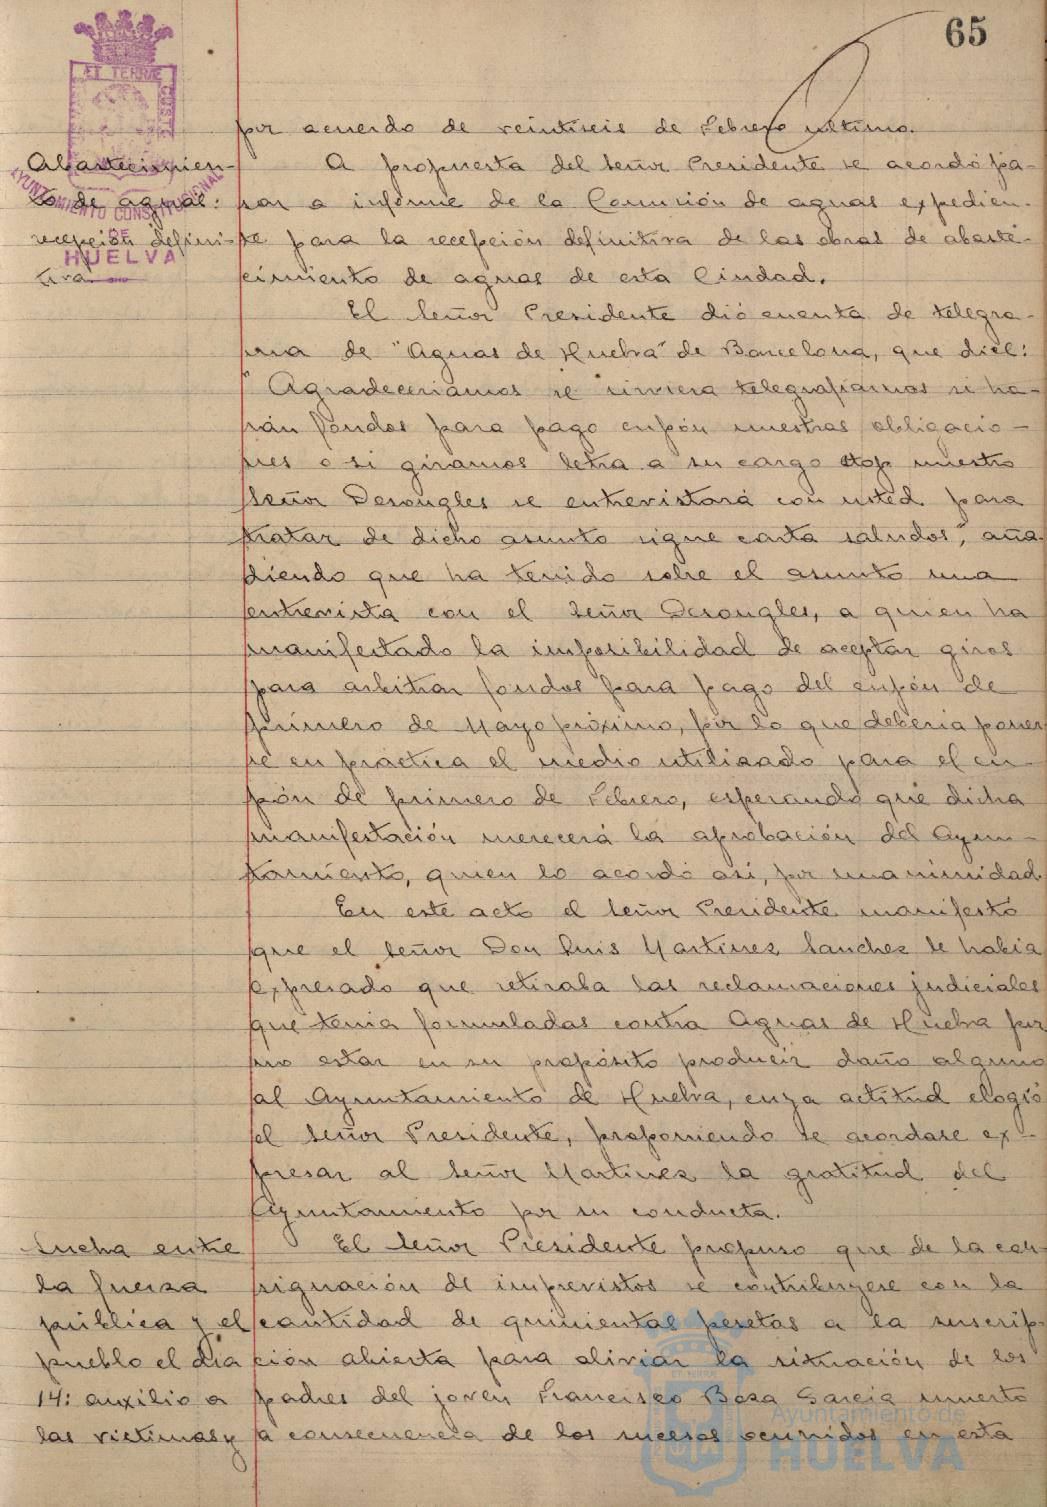 65
ET TERRÆ
CUSTO
AYUNTAMIENTO CONSTITUCIONAL
DE
HUELVA
por acuerdo de veintiseis de Febrero ultimo.
Abastecimien-
to de aguas:
recepción defini-
tiva.
A propuesta del Señor Presidente se acordó pa-
sar a informe de la Comisión de aguas expedien-
te para la recepción definitiva de las obras de abaste-
cimiento de aguas de esta Ciudad.
El Señor Presidente dió cuenta de telegra-
ma de "Aguas de Huelva" de Barcelona, que dice:
"Agradeceriamos se sirviera telegrafiarnos si ha-
rán fondos para pago cupón nuestras obligacio-
nes o si giramos letra a su cargo stop nuestro
Señor Desongles se entrevistará con usted para
tratar de dicho asunto sigue carta saludos", aña-
diendo que ha tenido sobre el asunto una
entrevista con el Señor Desongles, a quien ha
manifestado la imposibilidad de aceptar giros
para arbitrar fondos para pago del cupón de
primero de Mayo próximo, por lo que deberia poner
se en práctica el medio utilizado para el cu-
pón de primero de Febrero, esperando que dicha
manifestación merecerá la aprobación del Ayun-
tamiento, quien lo acordó asi, por unanimidad.
En este acto el Señor Presidente manifestó
que el Señor Don Luis Martinez Sanchez le habia
expresado que retiraba las reclamaciones judiciales
que tenia formuladas contra Aguas de Huelva por
no estar en su propósito producir daño alguno
al Ayuntamiento de Huelva, cuya actitud elogió
el Señor Presidente, proponiendo se acordase ex-
presar al Señor Martinez la gratitud del
Ayuntamiento por su conducta.
Lucha entre
la fuerza
pública y el
pueblo el dia
14: auxilio a
las victimas y
El Señor Presidente propuso que de la con-
signación de imprevistos se contribuyese con la
cantidad de quinientas pesetas a la suscrip-
ción abierta para aliviar la situación de los
padres del joven Francisco Boza Garcia muerto
a consecuencia de los sucesos ocurridos en esta
Ayuntamiento de
HUELVA